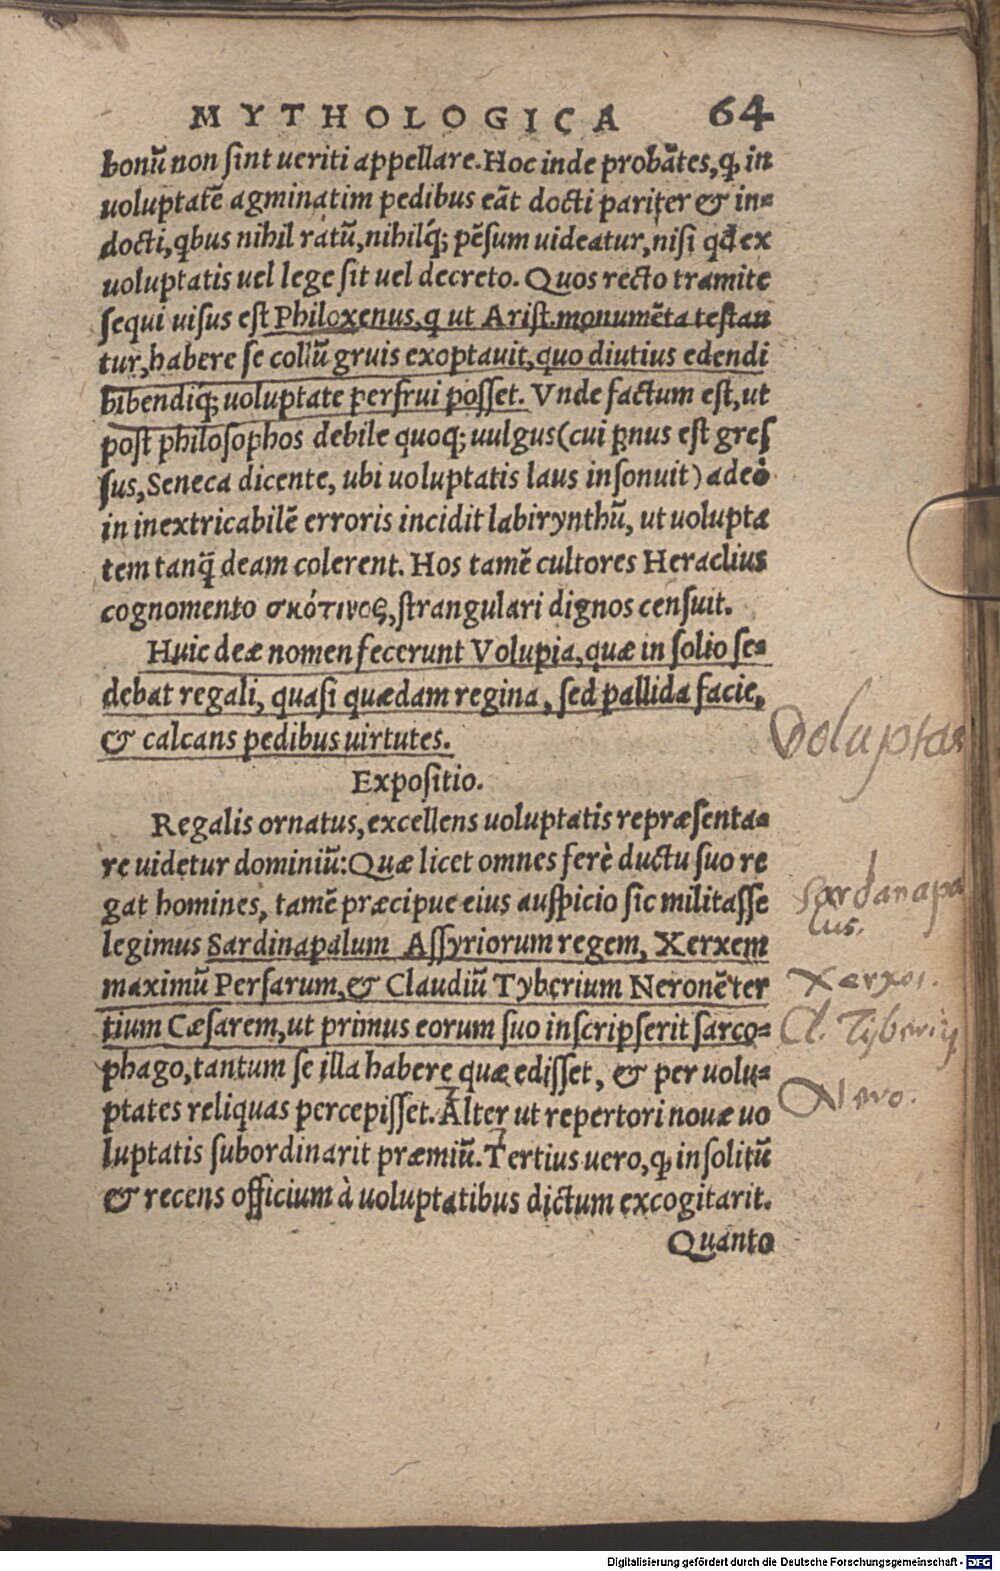 MYTHOLOGICA 64
bonũ non ſint ueriti appellare. Hoc inde probãtes, ꝙ in
uoluptatẽ agminatim pedibus eãt docti pariter & in-
docti, qbus nihil ratũ, nihilq́; pẽſum uideatur, niſi qđ ex
uoluptatis uel lege ſit uel decreto. Quos recto tramite
ſequi uiſus eſt Philoxenus, q ut Ariſt. monumẽta teſtan
tur, habere ſe collũ gruis exoptauit, quo diutius edendi
bibendiq́; uoluptate perfrui poſſet. Vnde factum eſt, ut
poſt philoſophos debile quoq; uulgus (cui ꝓnus eſt greſ
ſus, Seneca dicente, ubi uoluptatis laus inſonuit) adeò
in inextricabilẽ erroris incidit labirynthũ, ut uolupta
tem tanq̃ deam colerent. Hos tamẽ cultores Heraclius
cognomento σκότινος, ſtrangulari dignos cenſuit.
Huic deæ nomen fecerunt Volupia, quæ in ſolio ſe-
debat regali, quaſi quædam regina, ſed pallida facie,
& calcans pedibus uirtutes.
Voluptas
Expoſitio.
Regalis ornatus, excellens uoluptatis repræſenta-
re uidetur dominiũ: Quæ licet omnes ferè ductu ſuo re
gat homines, tamẽ præcipue eius auſpicio ſic militaſſe
legimus Sardinapalum Aſſyriorum regem, Xerxem
maximũ Perſarum, & Claudiũ Tyberium Neronẽ ter
tium Cæſarem, ut primus eorum ſuo inſcripſerit ſarco-
phago, tantum ſe illa habere quæ ediſſet, & per uolu-
ptates reliquas percepiſſet. Alter ut repertori nouæ uo
luptatis ſubordinarit præmiũ. Tertius uero, ꝙ inſolitũ
& recens officium à uoluptatibus dictum excogitarit.
Quanto
Sardanapa
lus.
Xerxes.
Cl. Tiberiꝰ
Nero.
Digitalisierung gefördert durch die Deutsche Forschungsgemeinschaft - DFG